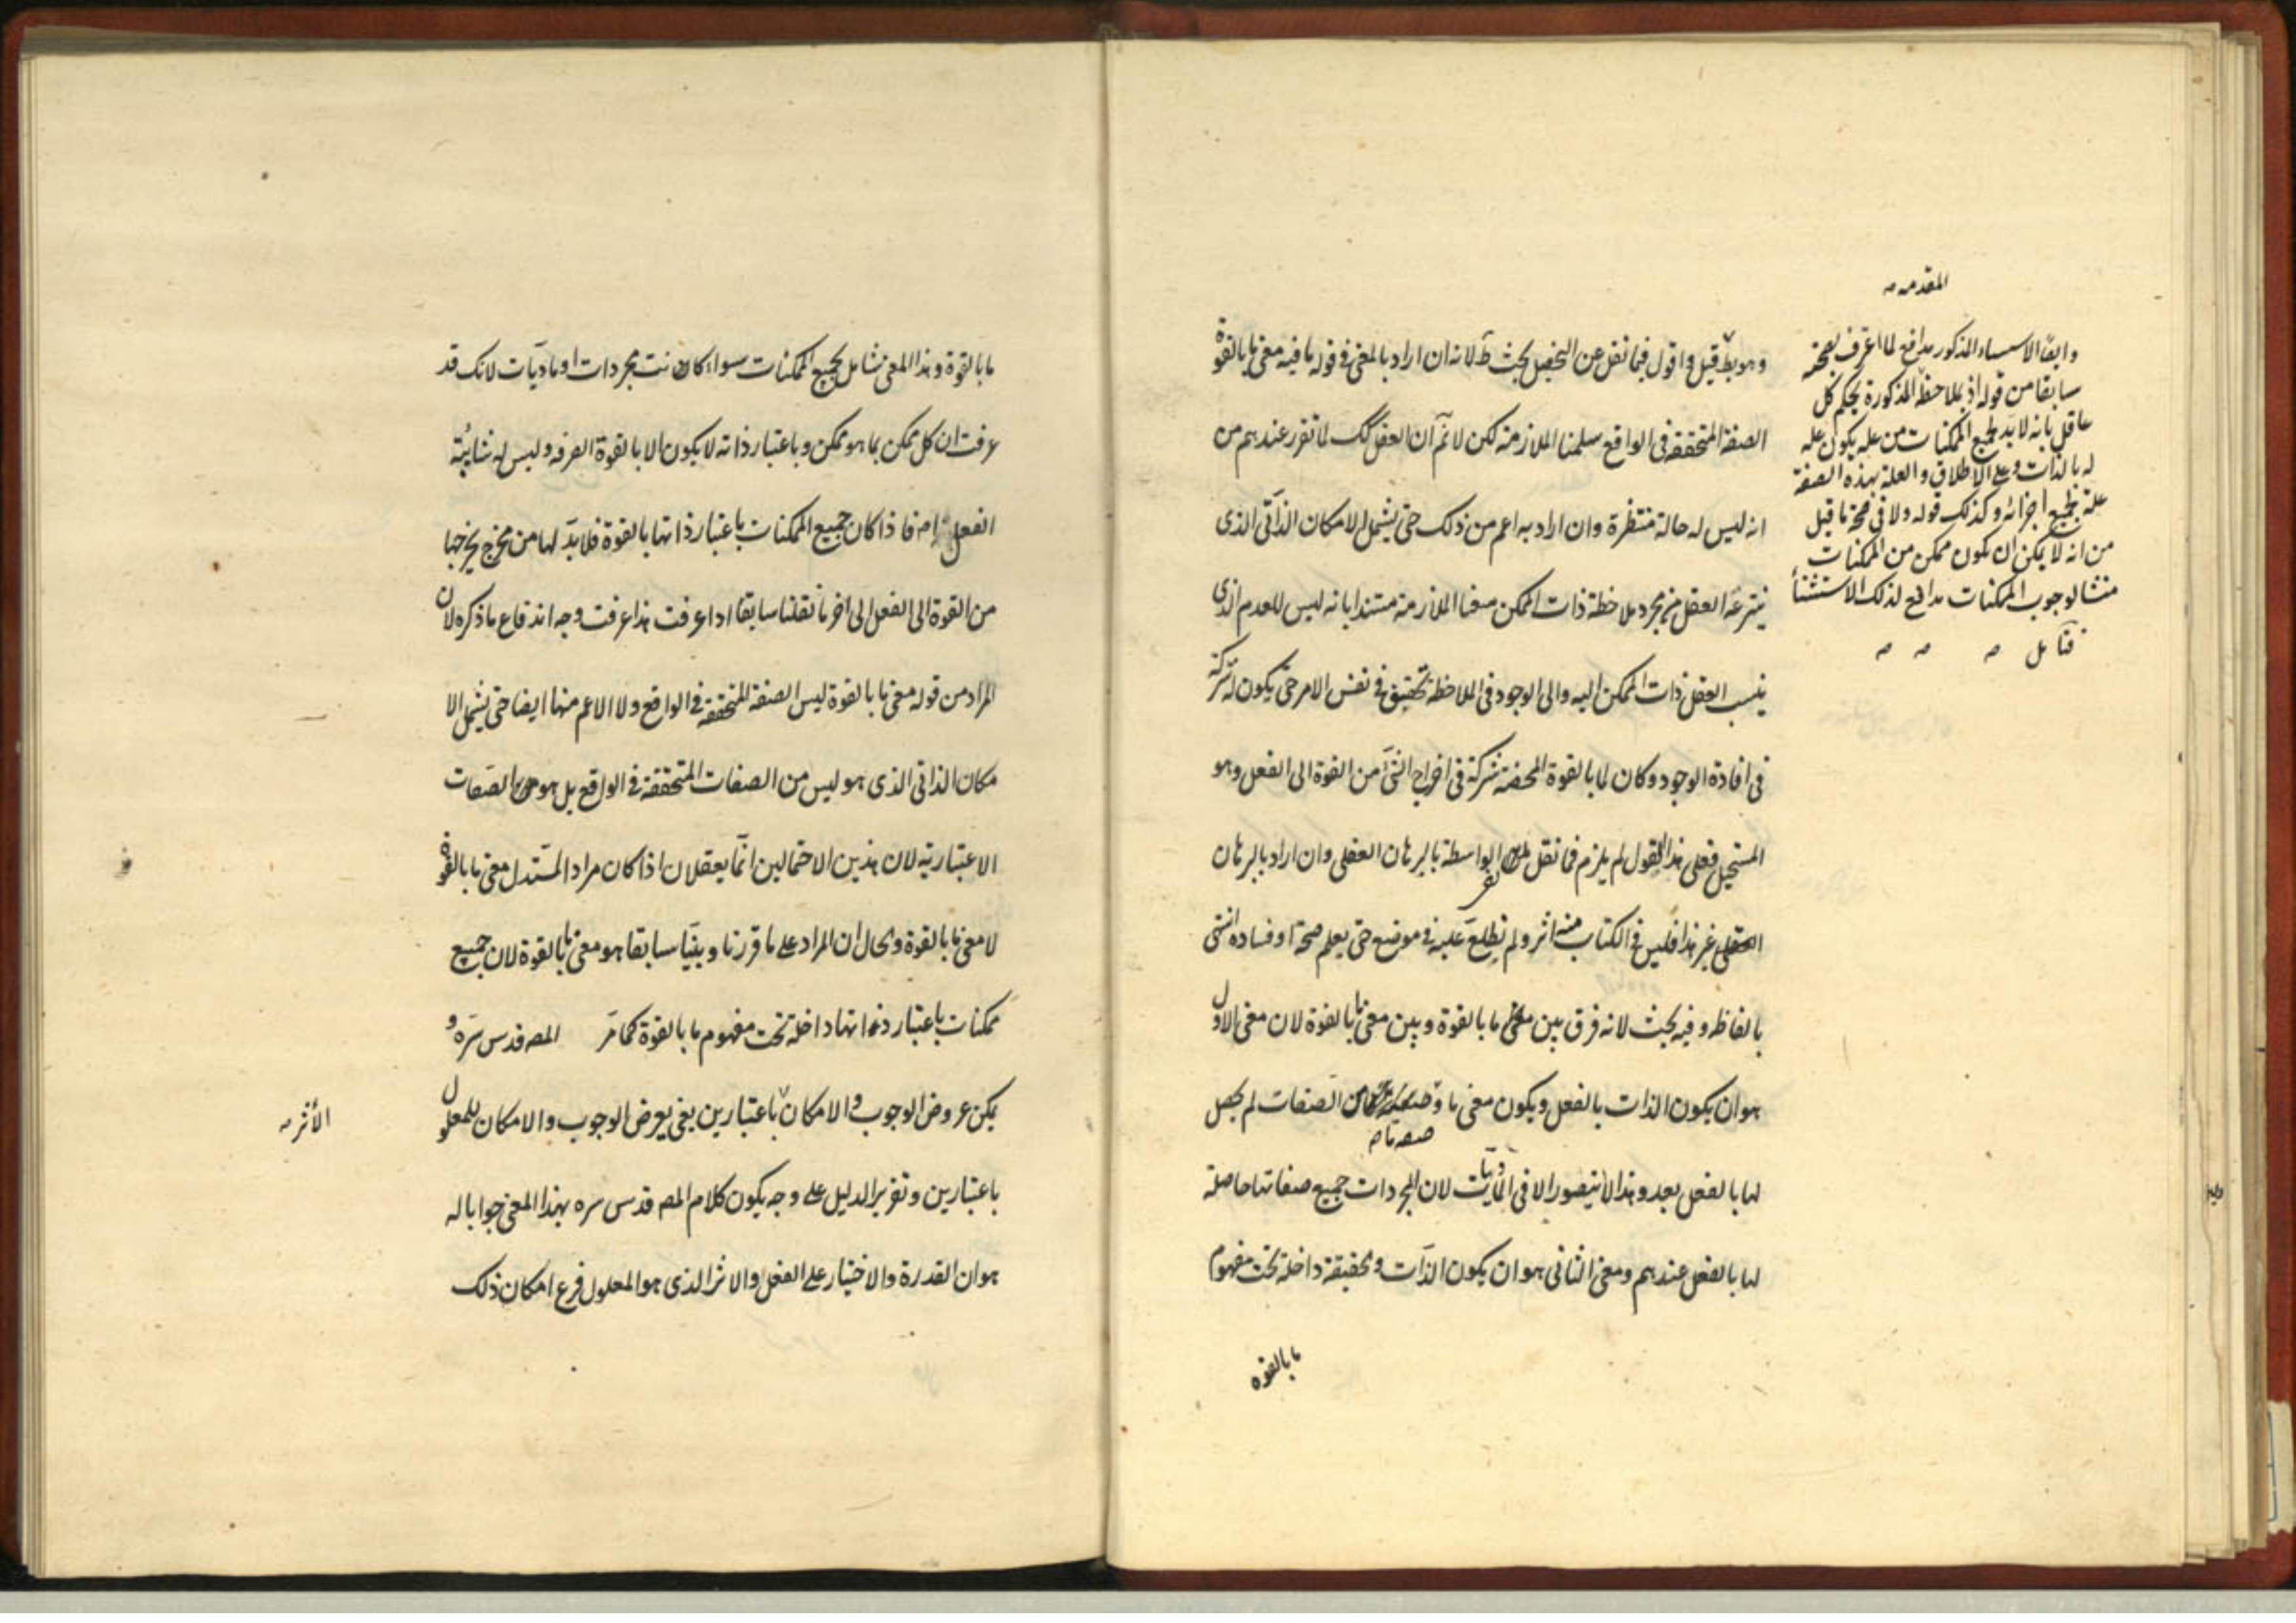 المقدمه صه
وايضا الاستثناء المذكور مدافع لما اعترف بصحته
سابقا من قوله اذ بملاحظة المذكورة يحكم كل
عاقل بانه لا بد لجميع الممكنات من علة يكون علة
له بالذات وعلى الاطلاق والعلة بهذه الصفة
علة بجميع اجزائه وكذلك قوله ولا فى صحة ما قيل
من انه لا يمكن ان يكون ممكن من الممكنات
منشا لوجوب الممكنات مدافع لذلك الاستثناء
فتامل صه صه صه
وهو بط قيل واقول فيما نقل عن التحصيل بحث ظ لانه ان اراد بالمعنى فى قوله ما فيه معنى ما بالقوة
الصفة المتحققة فى الواقع سلمنا الملازمة لكن لا نم ان العقل كك لما تقرر عندهم من
انه ليس له حالة منتظرة وان اراد به اعم من ذلك حتى يشمل الامكان الذاتى الذى
ينتزعه العقل من مجرد ملاحظة ذات الممكن منعنا الملازمة مستندا بانه ليس للعدم الذى
ينسب العقل ذات الممكن اليه والى الوجود فى الملاحظة تحقيق فى نفس الامر حتى يكون له شركة
فى افادة الوجود وكان لما بالقوة المحضة شركة فى اخراج الشئ من القوة الى الفعل وهو
المستحيل فعلى هذا القول لم يلزم فما نقل الواسطة بالبرهان العقلى وان اراد بالبرهان
العقلى غير هذا فليس فى الكتاب منه اثر ولم نطلع عليه فى موضع حتى يعلم صحته او فساده انتهى
بالفاظه وفيه بحث لانه فرق بين معنى ما بالقوة وبين معنى ما بالقوة لان معنى الاول
هو ان يكون الذات بالفعل ويكون معنى ما و من الصفات لم يحصل
صفه ما صه
لها بالفعل بعد وهذا لا يتصور الا فى الماديات لان المجردات جميع صفاتها حاصلة
لها بالفعل عندهم ومعنى الثانى هو ان يكون الذات والحقيقة داخلة تحت مفهوم
ما بالقوة
ما بالقوة وهذا المعنى شامل لجميع الممكنات سواء كانت مجردات او ماديات لانك قد
عرفت ان كل ممكن بما هو ممكن وباعتبار ذاته لا يكون الا بالقوة الصرفه وليس له شائبة
الفعل اصه فاذا كان جميع الممكنات باعتبار ذاتها بالقوة فلا بد لها من مخرج يخرجها
من القوة الى الفعل الى اخر ما نقلنا سابقا اذا عرفت هذا عرفت وجه اندفاع ما ذكره لان
المراد من قوله معنى ما بالقوة ليس الصفة المتحققة فى الواقع ولا الاعم منها ايضا حتى يشمل الا
مكان الذاتى الذى هو ليس من الصفات المتحققة فى الواقع بل هو من الصفات
الاعتبارية لان هذين الاحتمالين انما يعقلان اذا كان مراد المستدل معنى ما بالقوة
لا معنى ما بالقوة والحال ان المراد على ما قررنا وبينا سابقا هو معنى ما بالقوة لان جميع
ممكنات باعتبار ذواتها داخلة تحت مفهوم ما بالقوة كما مر المصه قدس سره و
يمكن عروض الوجوب والامكان باعتبارين يعنى يعرض الوجوب والامكان للمعلول
الأثر صه
باعتبارين وتقرير الدليل على وجه يكون كلام المصه قدس سره بهذا المعنى جوابا له
هو ان القدرة والاختيار على الفعل والاثر الذى هو المعلول فرع امكان ذلك